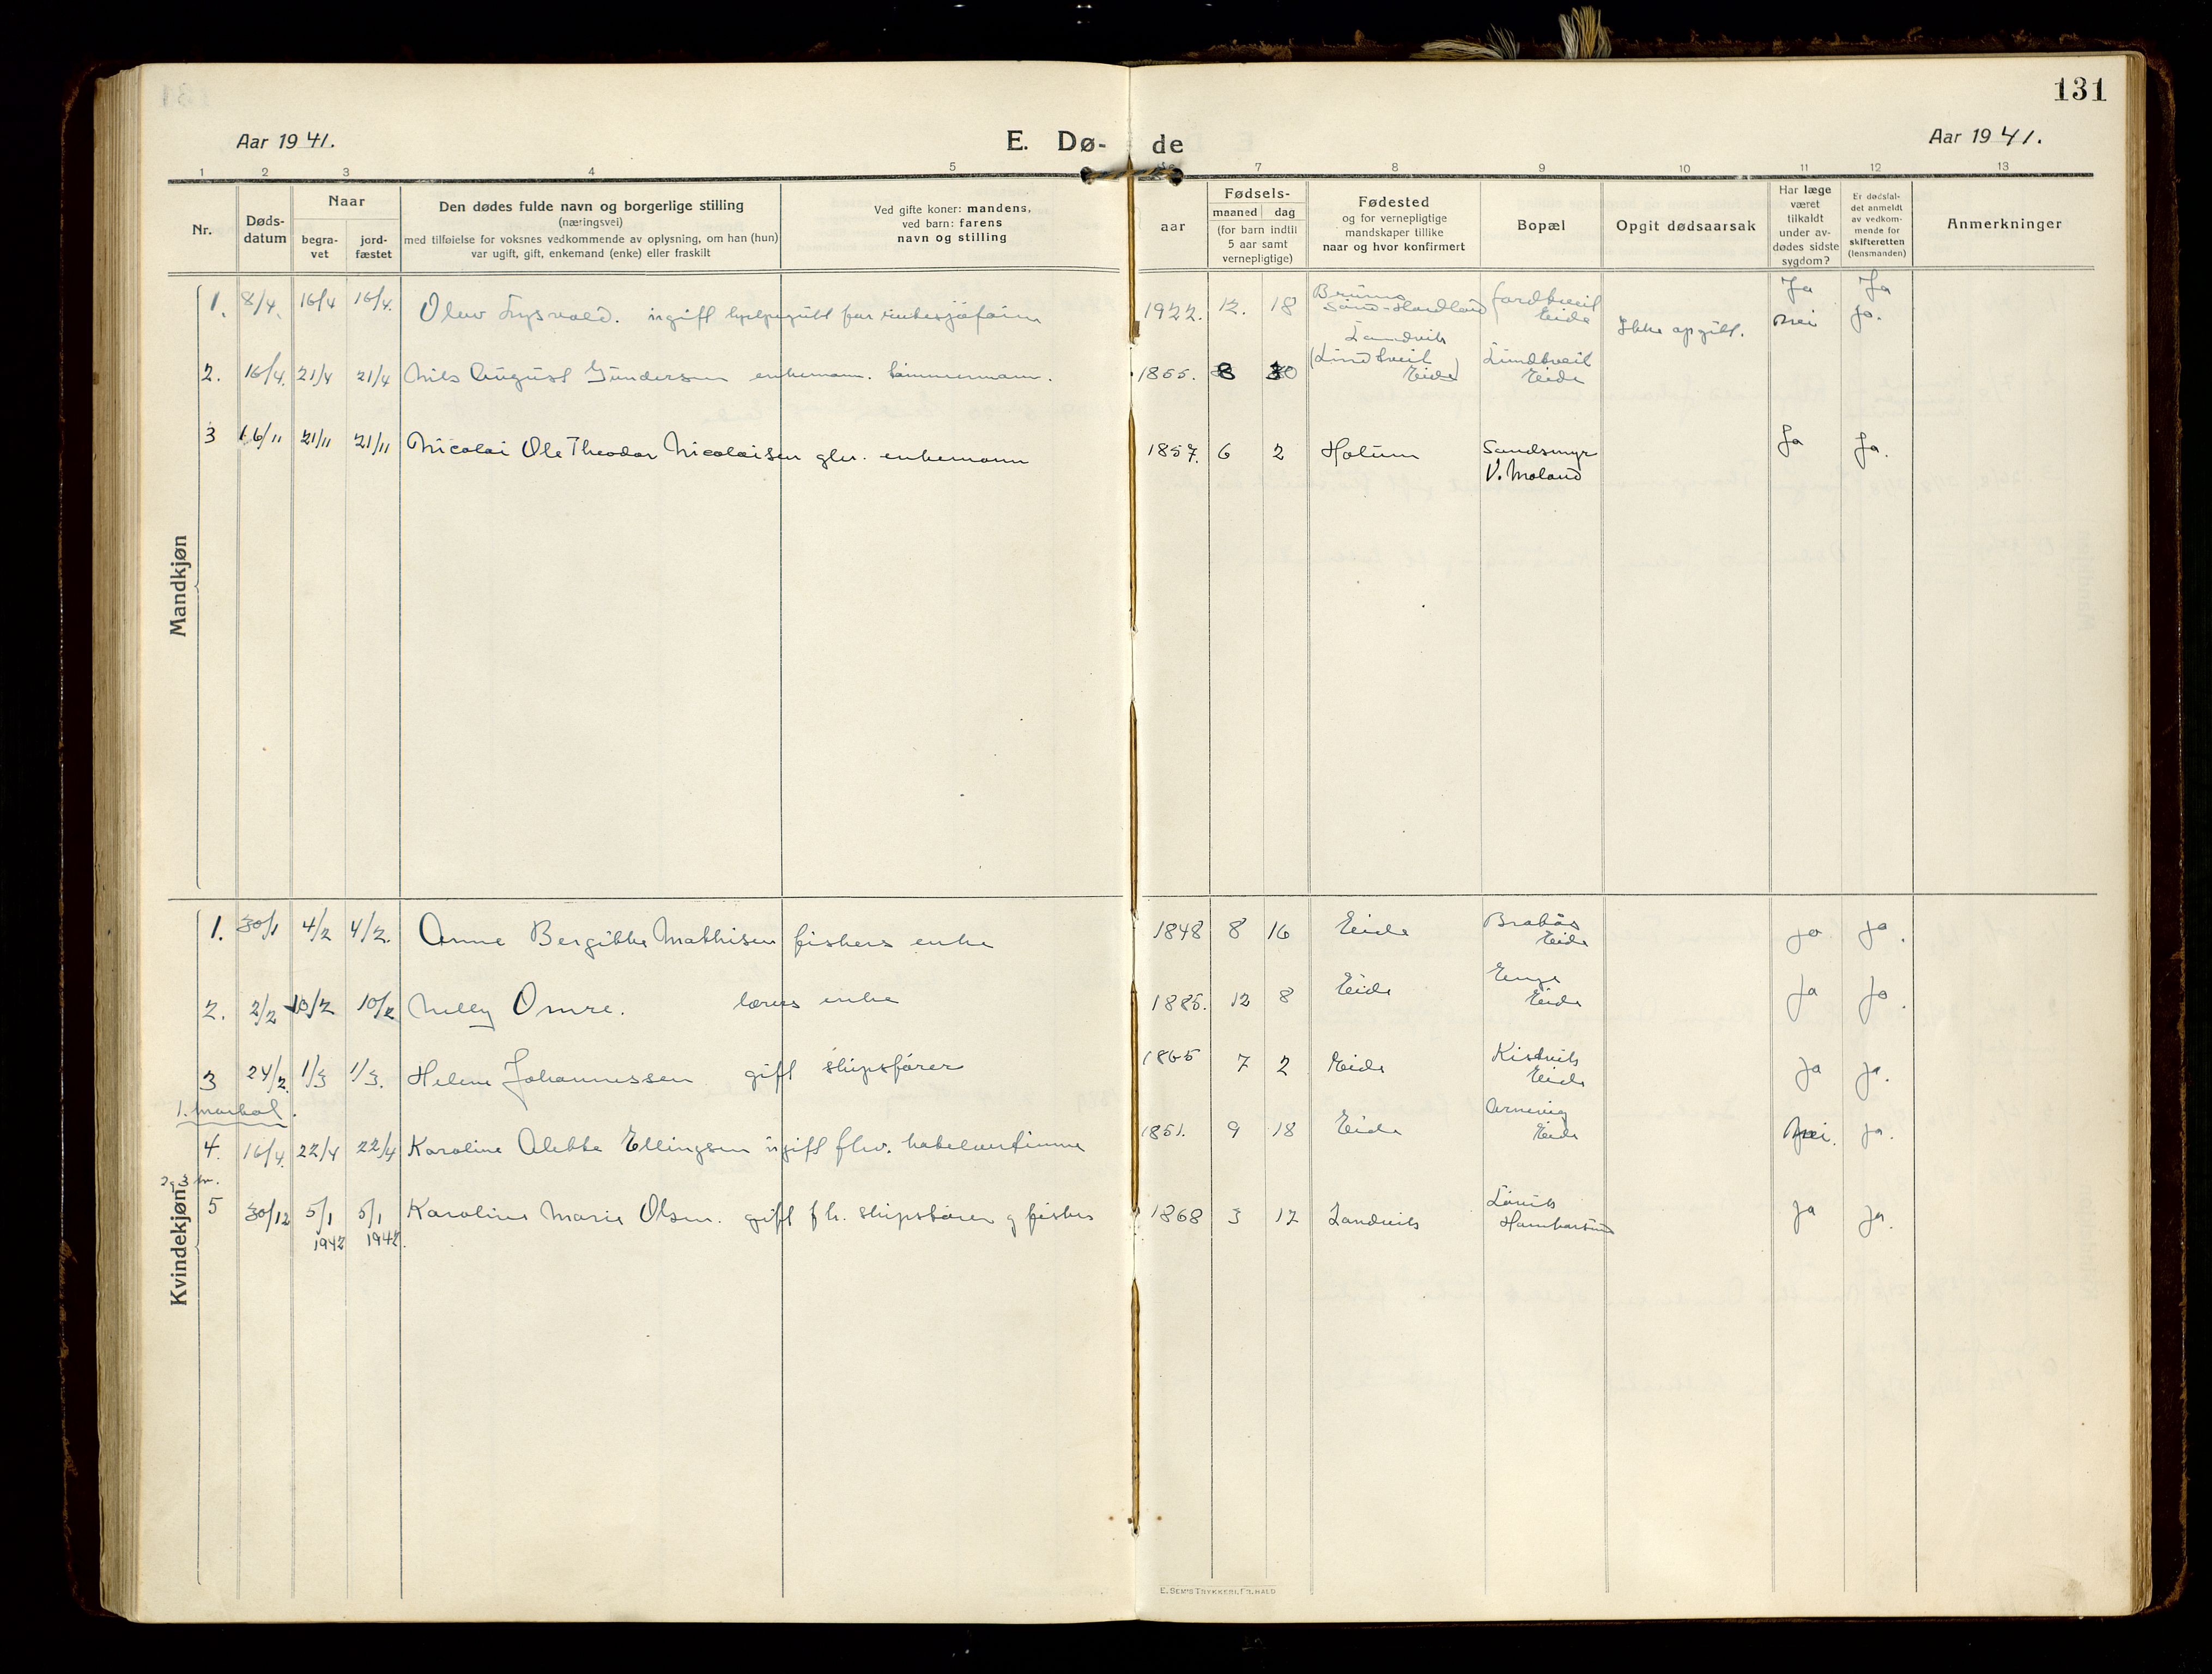 131
Aar 1941.
E. Dø-
de
Aar 1941.
1 2 3 4 5 7 8 9 10 11 12 13
Nr.
Døds-
datum
Naar
begra-
vet
jord-
fæstet
Den dødes fulde navn og borgerlige stilling
(næringsvei)
med tilføielse for voksnes vedkommende av oplysning, om han (hun)
var ugift, gift, enkemand (enke) eller fraskilt
Ved gifte koner: mandens,
ved barn: farens
navn og stilling
aar
Fødsels-
maaned dag
(for barn indtil
5 aar samt
vernepligtige)
Fødested
og for vernepligtige
mandskaper tillike
naar og hvor konfirmert
Bopæl
Opgit dødsaarsak
Har læge
været
tilkaldt
under av-
dødes sidste
sygdom?
Er dødsfal-
det anmeldt
av vedkom-
mende for
skifteretten
(lensmanden)
Anmerkninger
Mandkjøn
1. 8/4. 16/4 16/4. Olav ugift 1922. 12. 18 Eide Ja Ja
2. 16/4. 21/4 21/4 Nils August Gundersen enkemann. tømmermann. 1855. 8 30 Landvik (Lindtveit Eide) Lindtveit Eide Ikke opgitt. Nei Ja.
3 16/11 21/11 21/11 Nicolai Ole Theodor Nicolaisen enkemann 1857. 6 2 Holum Sandsmyr V. Moland Ja Ja.
Kvindekjøn
1. 30/1 4/2 4/2. Anne Bergitte Mathisen fiskers enke 1848 8 16 Eide Eide Ja Ja.
2. 2/2 10/2 10/2 Nelly Omre. lærers enke 1885. 12 8 Eide Enge Eide Ja Ja.
3 24/2. 1/3 1/3. Helene Johannessen gift skipsfører 1865 7 2 Eide Kistvik Eide Ja Ja.
4. 16/4. 22/4 22/4 Karoline Alette Ellingsen ugift flv. 1851. 9 18 Eide Arnevig Eide Nei. Ja.
5 30/12 5/1 1942 5/1 1942. Karoline Marie Olsen. gift fh. skipsfører og fisker 1868 3 12 Landvik Hambarsund Ja Ja.
E. SEM'S TRYKKERI, FR.HALD